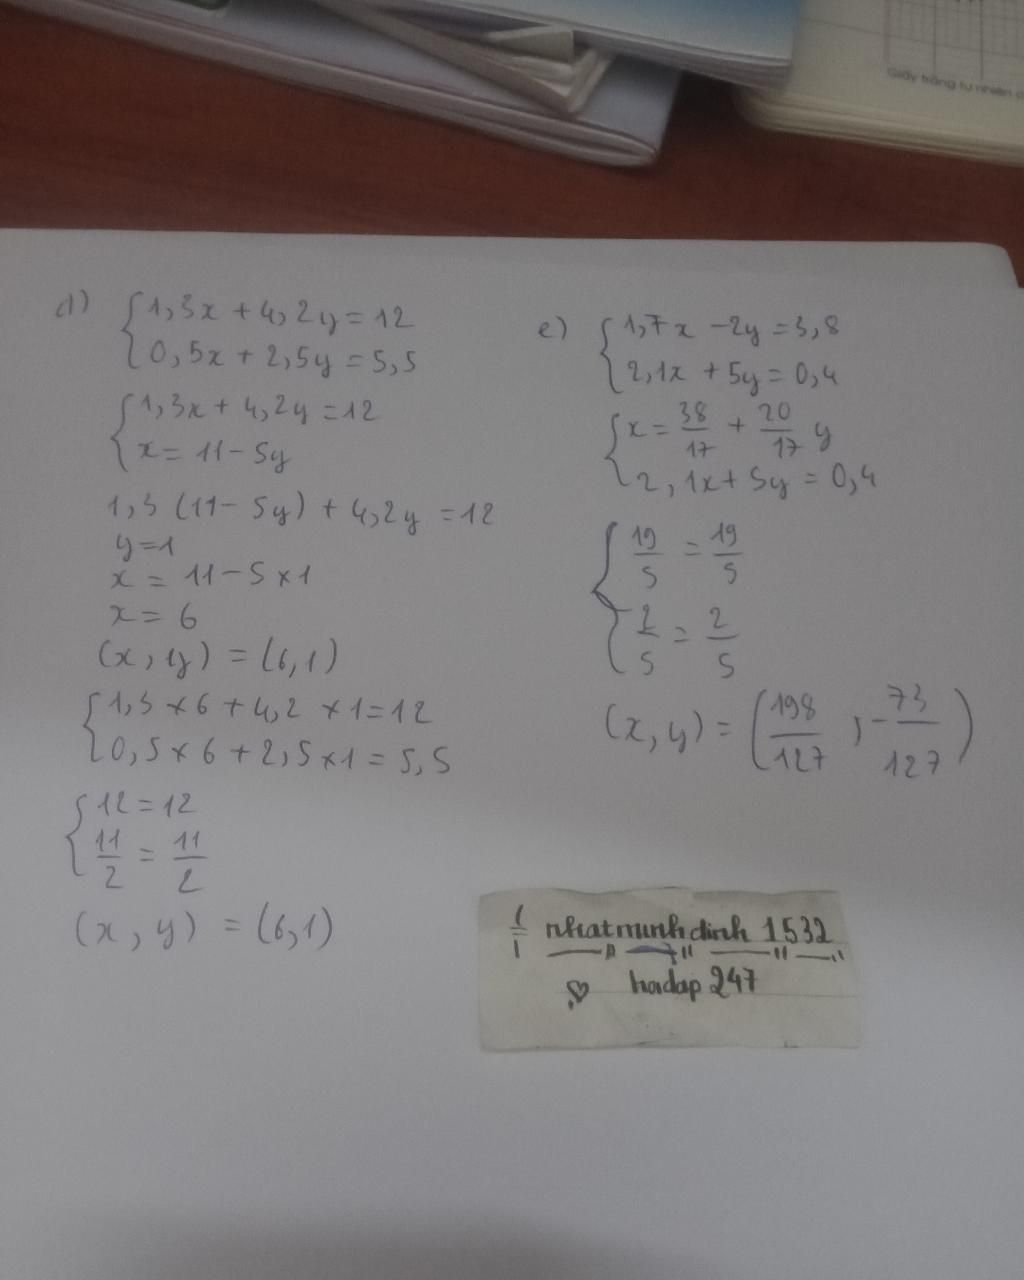 Giấy trắng tự nhiên
d) {1,3x + 4,2y = 12
0,5x + 2,5y = 5,5
{1,3x + 4,2y = 12
x = 11 - 5y
1,3 (11 - 5y) + 4,2y = 12
y = 1
x = 11 - 5 x 1
x = 6
(x, y) = (6,1)
{1,3 x 6 + 4,2 x 1 = 12
0,5 x 6 + 2,5 x 1 = 5,5
{12 = 12
11/2 = 11/2
(x, y) = (6,1)
e) {1,7x - 2y = 3,8
2,1x + 5y = 0,4
{x = 38/17 + 20/17 y
2,1x + 5y = 0,4
{19/5 = 19/5
2/5 = 2/5
(x, y) = (198/127, -73/127)
nhatminhdinh 1532
hoidap 247